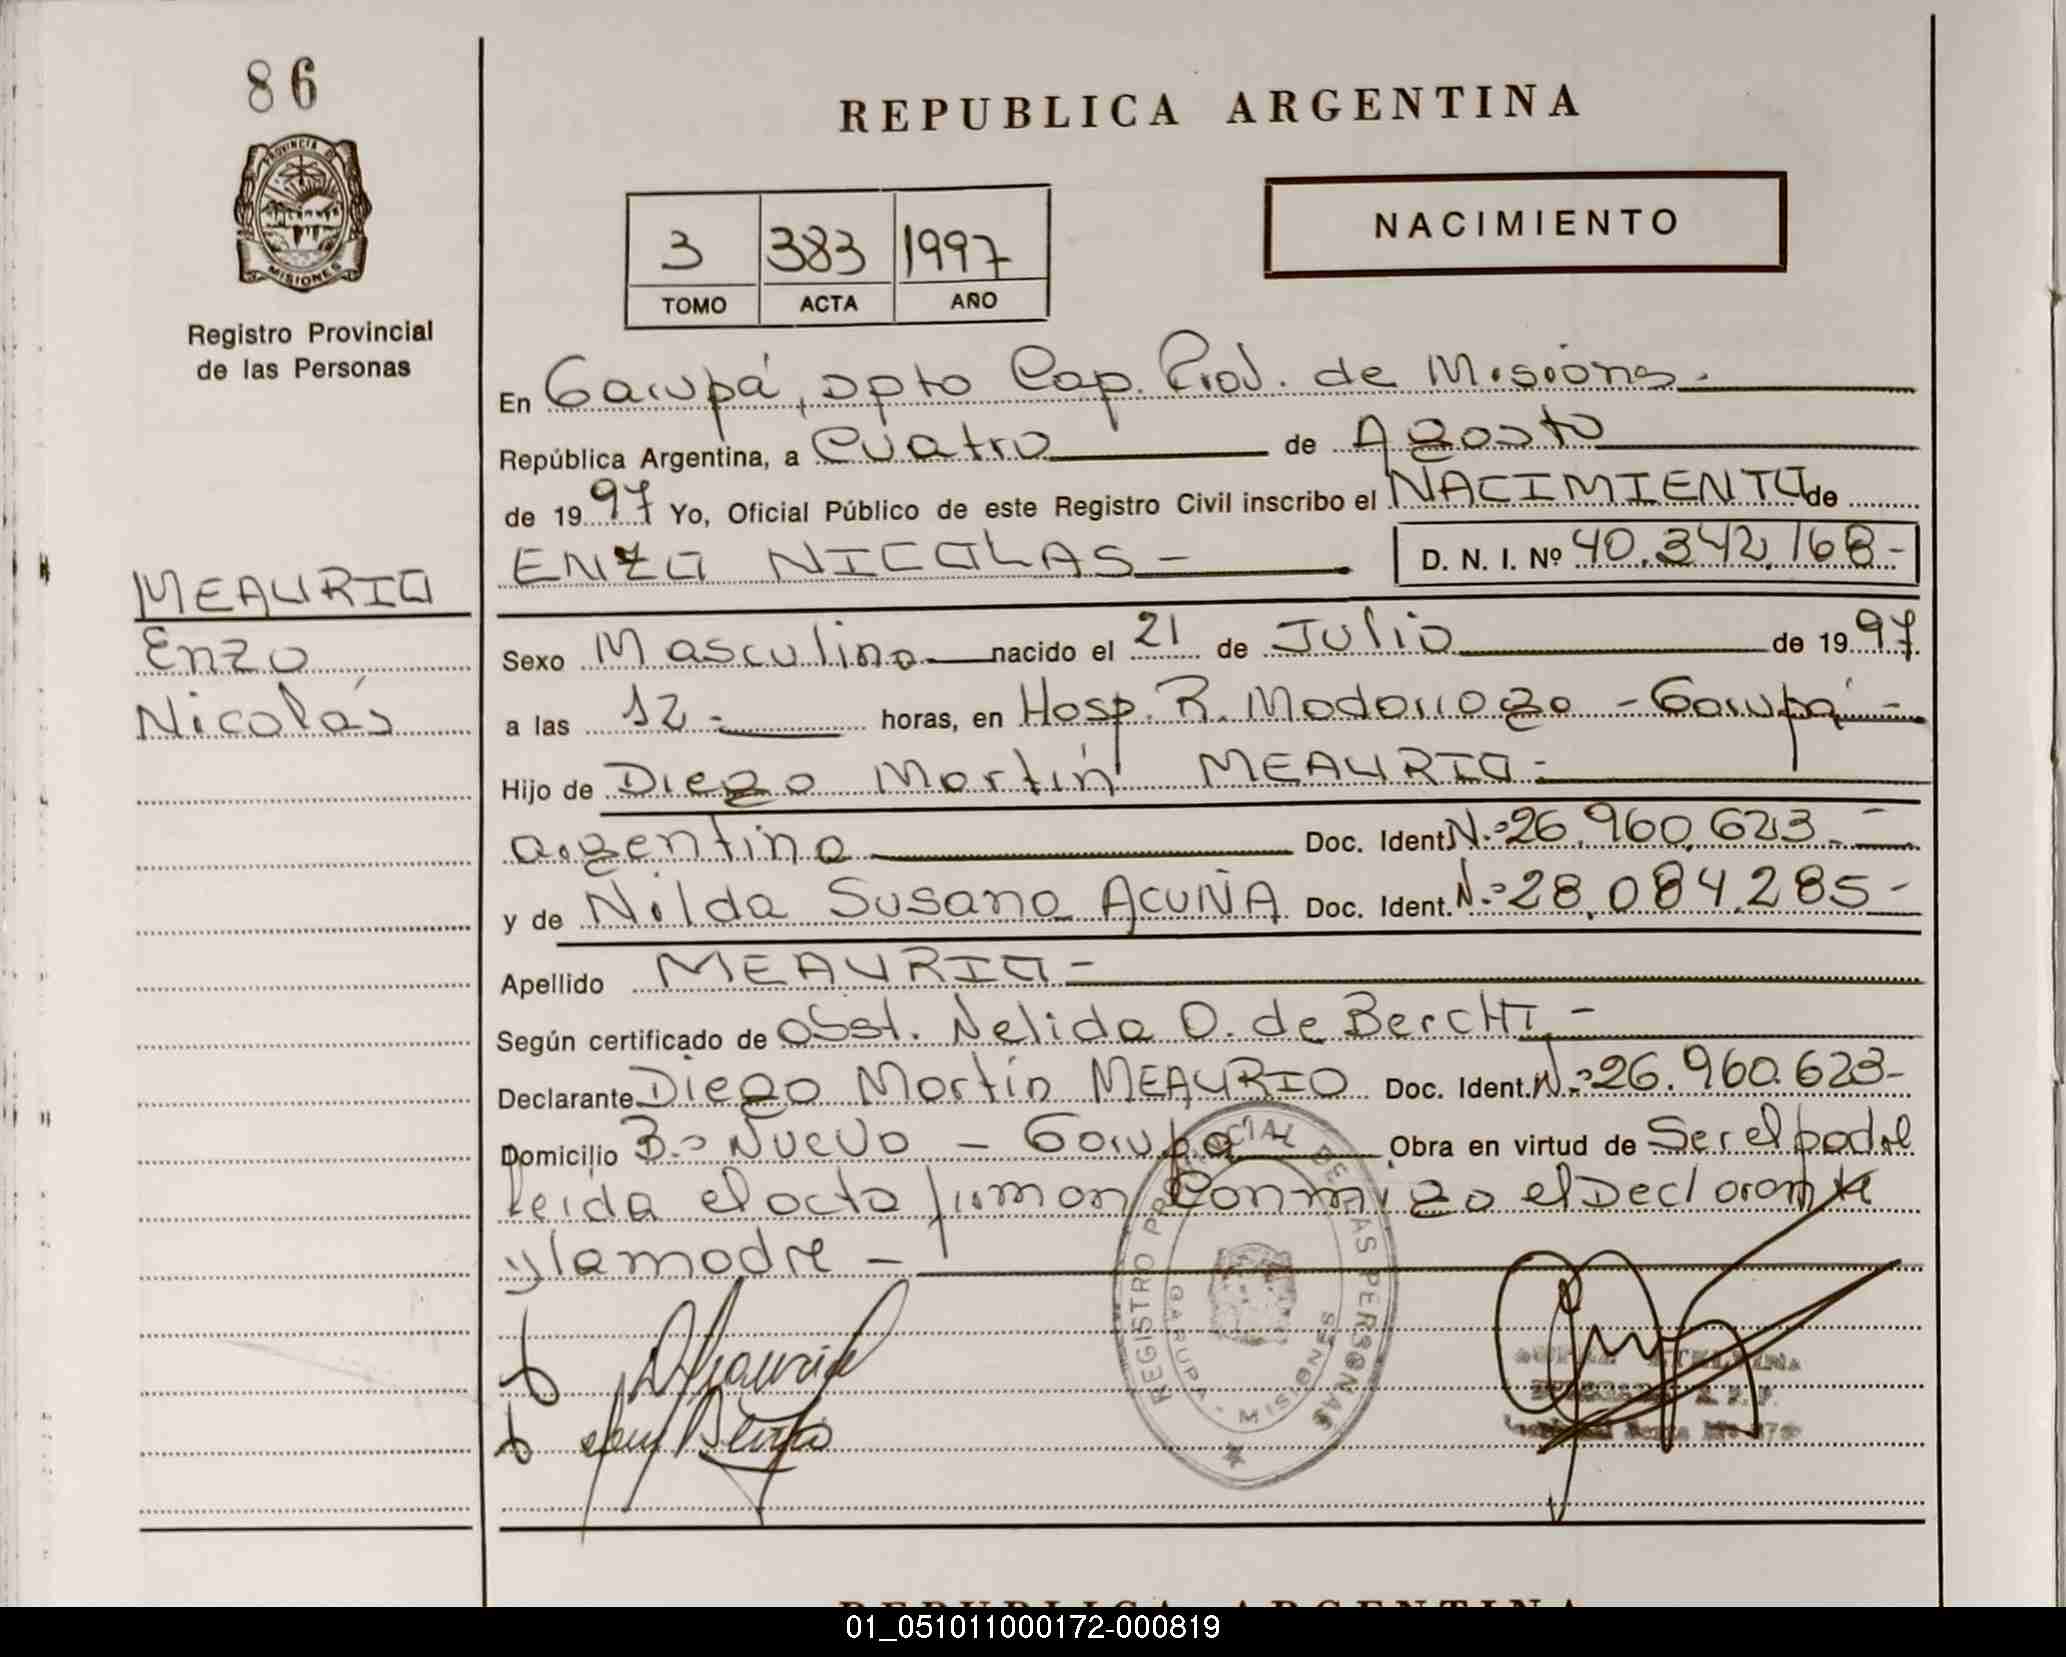 86
PROVINCIA DE
MISIONES
Registro Provincial
de las Personas
MEAURIO
Enzo
Nicolás
REPUBLICA ARGENTINA
3 383 1997
TOMO ACTA AÑO
NACIMIENTO
En Garupá, Dpto Cap. Prov. de Misiones.
República Argentina, a Cuatro de Agosto
de 1997 Yo, Oficial Público de este Registro Civil inscribo el NACIMIENTO de
ENZO NICOLAS - D. N. I. Nº 40.342.168-
Sexo Masculino nacido el 21 de Julio de 1997
a las 12 - horas, en Hosp. R. Madariaga - Garupá -
Hijo de Diego Martín MEAURIO-
argentino Doc. Ident. Nº 26.960.623.-
y de Nilda Susana ACUÑA Doc. Ident. Nº 28.084.285-
Apellido MEAURIO-
Según certificado de Obst. Nelida O. de Berchi -
Declarante Diego Martín MEAURIO Doc. Ident. Nº 26.960.623-
Domicilio Bº Nuevo - Garupa Obra en virtud de Ser el padre
leida el acta firman Conmigo el Declarante
y la madre -
REGISTRO PROVINCIAL DE LAS PERSONAS
GARUPA - MISIONES
REPUBLICA ARGENTINA
01_051011000172-000819